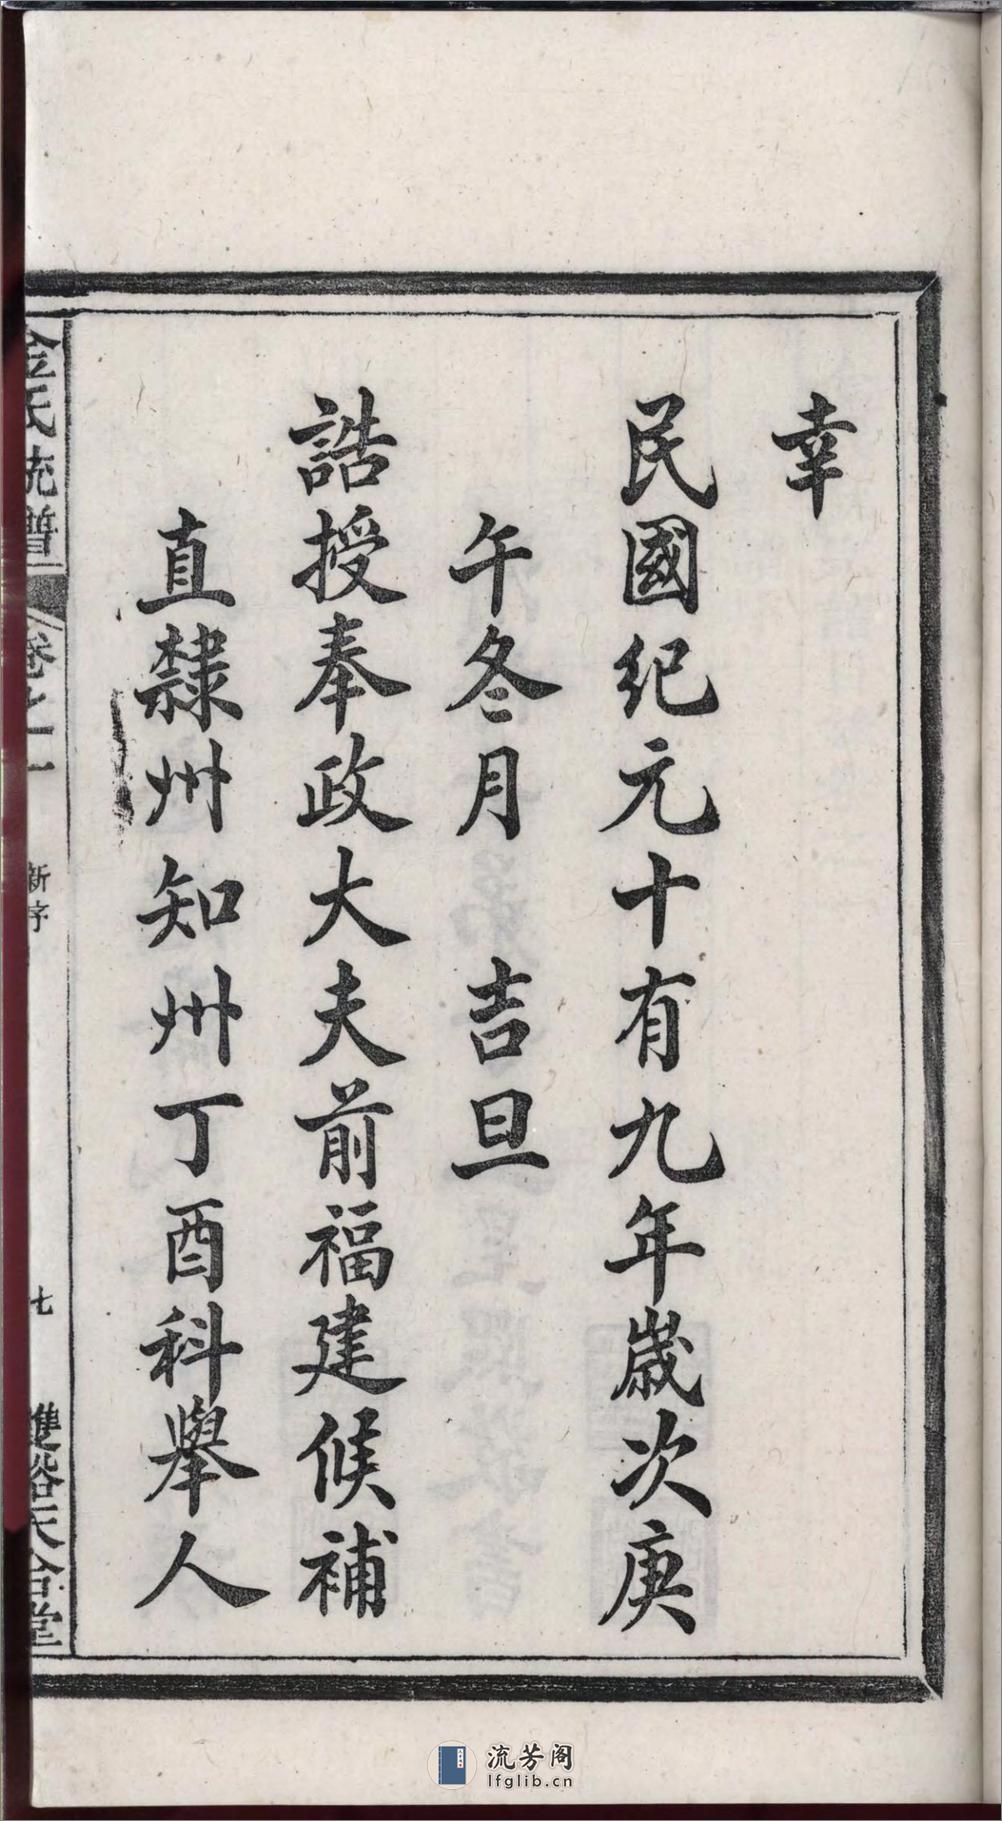 幸
民國紀元十有九年歲次庚
午冬月 吉旦
誥授奉政大夫前福建候補
直隸州知州丁酉科舉人
氏統譜
卷之一
新序
七
流芳阁
lfglib.cn